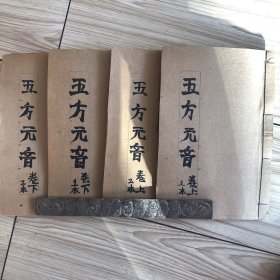 五方元音
卷上
上本
五方元音
卷上
下本
五方元音
卷下
上本
五方元音
卷下
下本